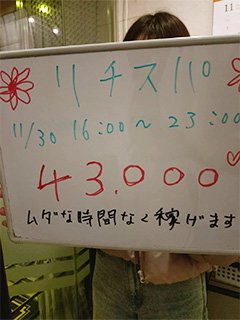 リチスパ
11/30 16:00~23:00
43.000
ムダな時間なく稼げます